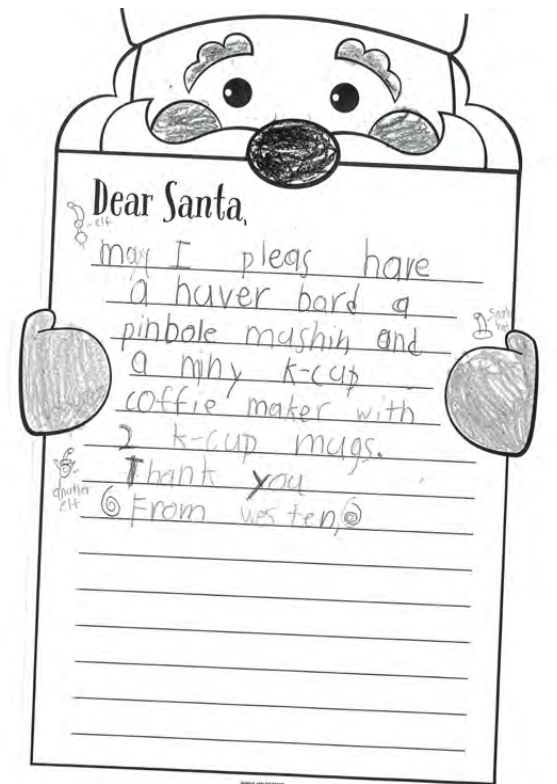 Dear Santa,
elf
may I pleas have
a huver bord a
pinbole mashin and
a miny k-cup
coffie maker with
2 k-cup mugs.
Thank you
anuther
elf
From westen